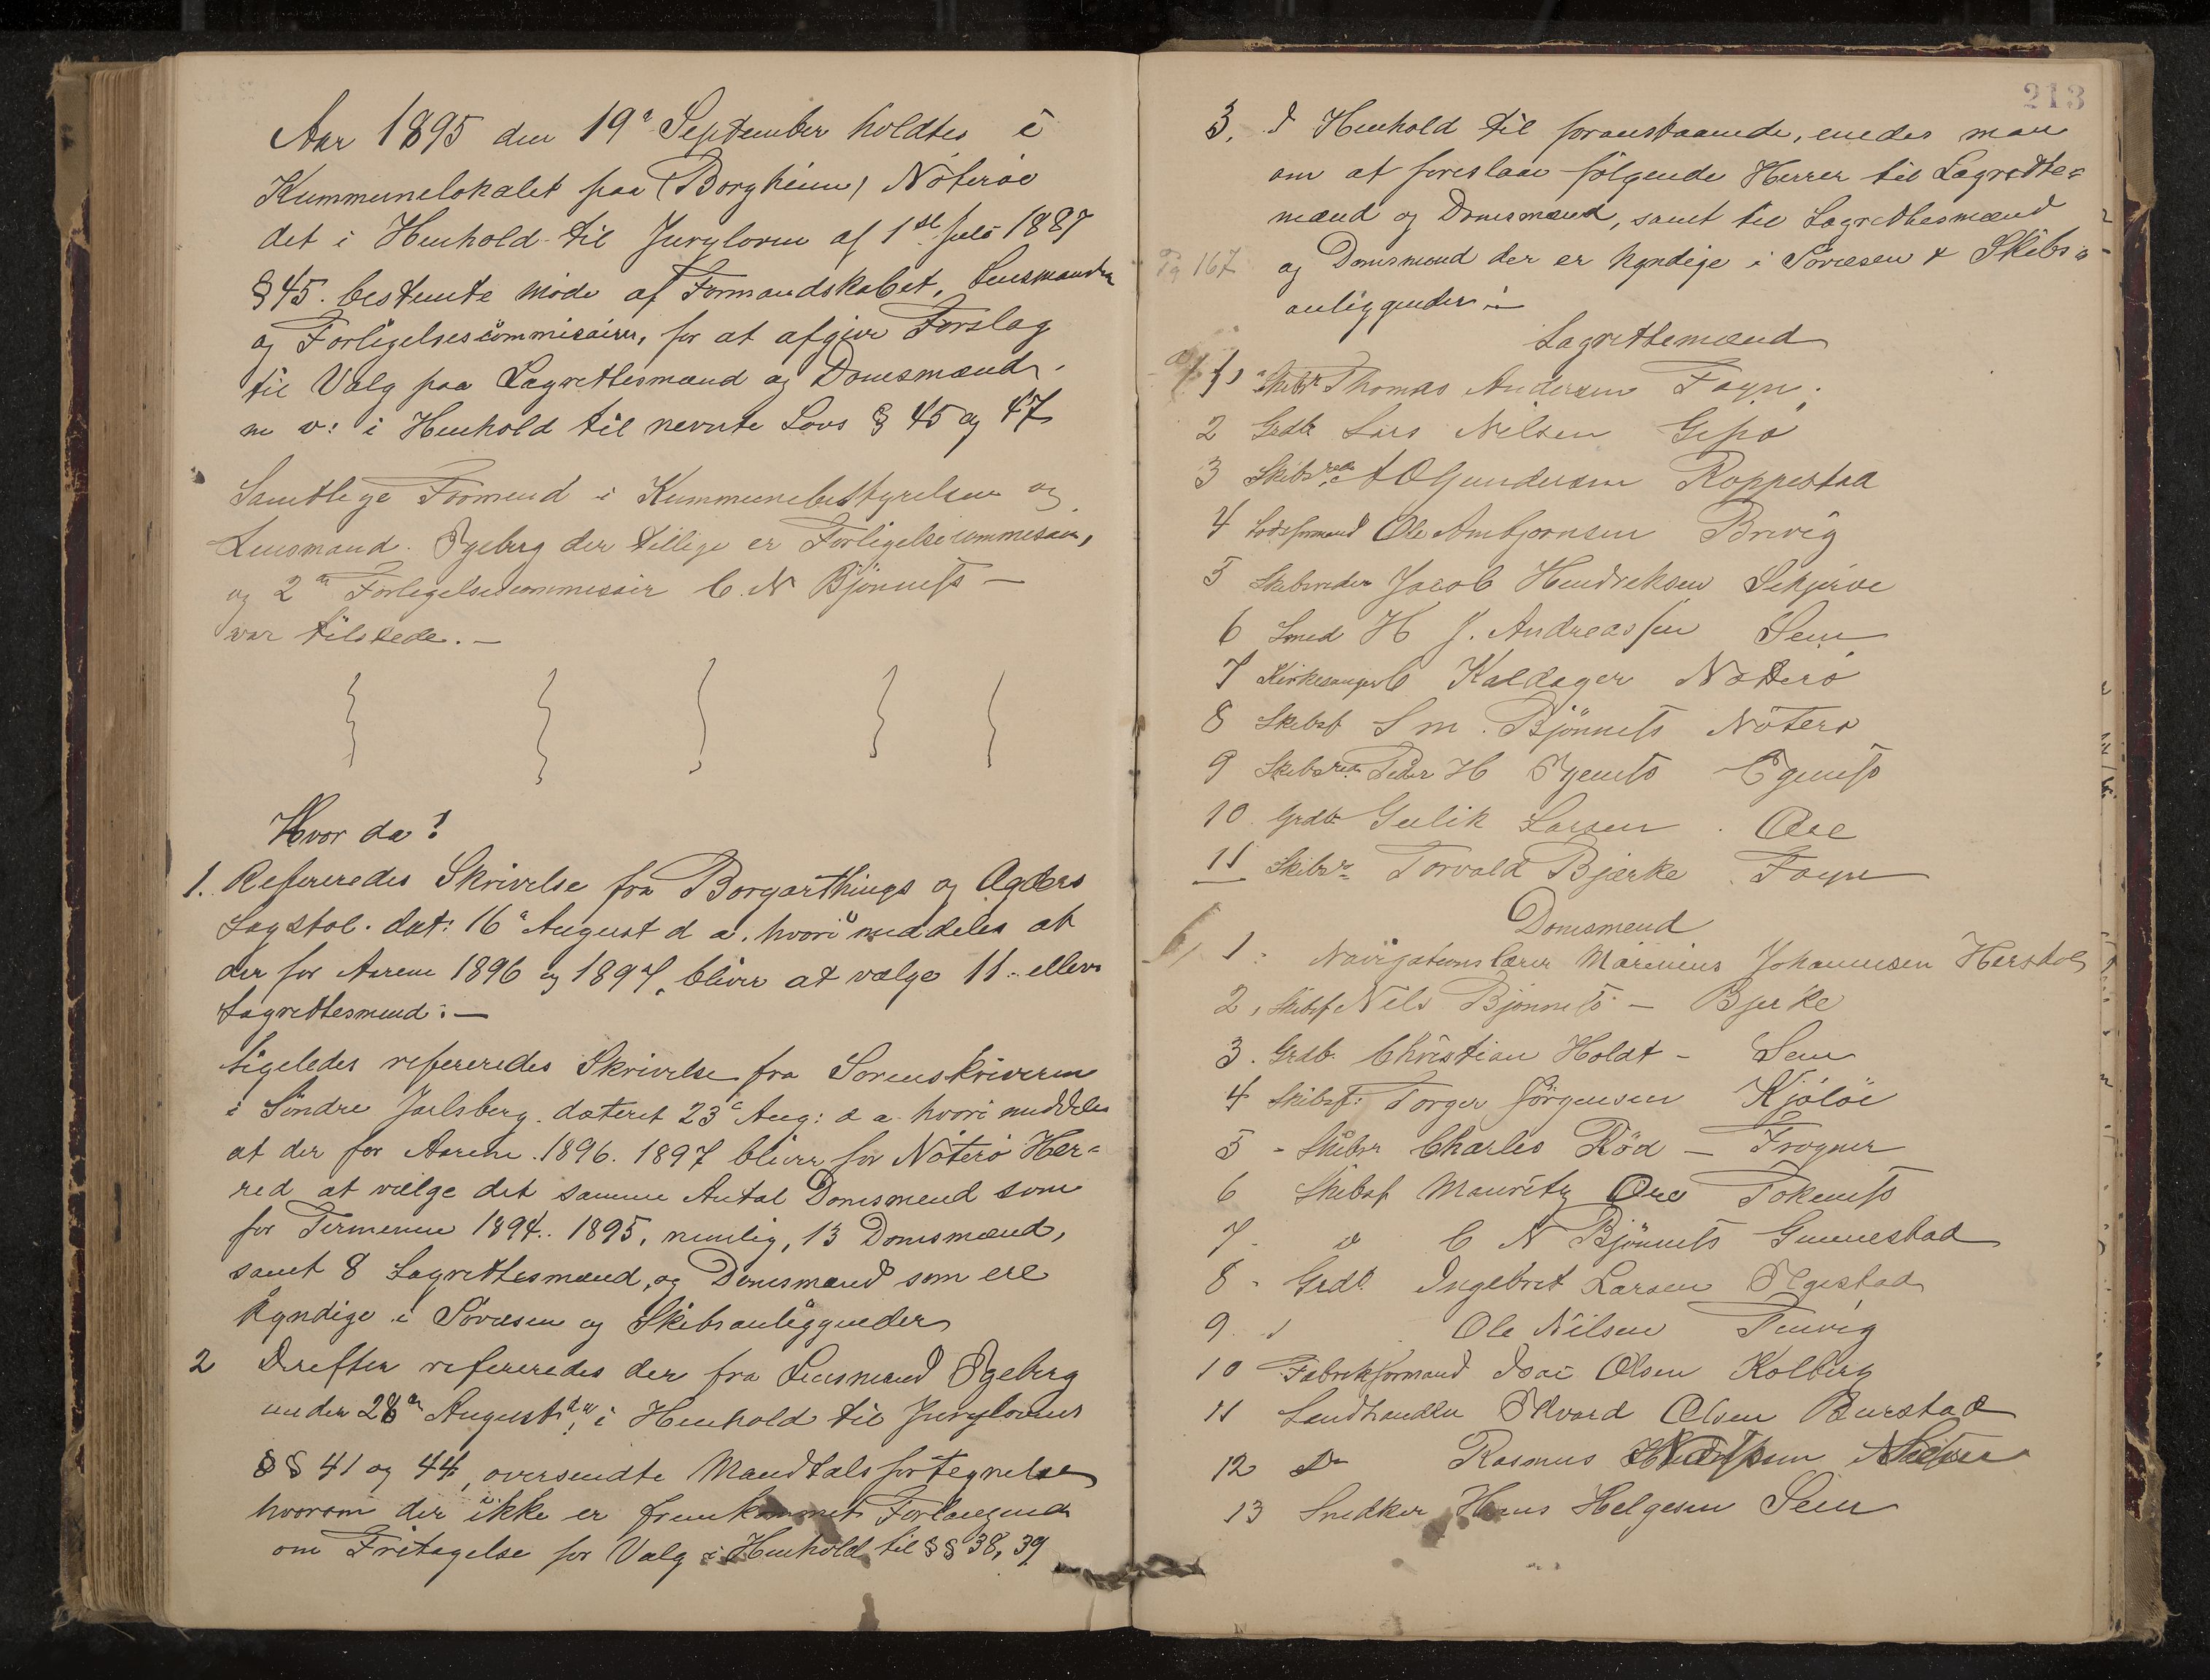 Aar 1895 den 19de September holdtes i
Kummunelokalet paa (Borgheim) Nöteröe
det i Henhold til Juryloven af 1ste Juli 1887
§ 45. bestemte Möde af Formandskabet, Lensmanden
og Forligelsescommisairer, for at afgive Forslag
til Valg paa Lagrettesmænd og Domsmænd.
m v: i Henhold til nevnte Lovs § 45 og 47
Samtlige Formend i Kummunebestyrelsen og
Lensmand. Ygeberg der tillige er Forligelsecommesair,
og 2den Forligelsescommesair C. N Bjönness —
var tilstede. —
Hvor da!
1. Refereredes Skrivelse fra Borgarthings og Agders
Lagstol. dat: 16de August d a. hvori meddeles at
der for Aarene 1896 og 1897, bliver at vælge 11. elleve
Lagrettesmend: —
Ligeledes refereredes Skrivelse fra Sorenskriveren
i Söndre Jarlsberg. dateret 23de Aug: d a. hvori meddeles
at der for Aarene. 1896. 1897 bliver for Nöterö Her=
red at vælge det samme Antal Domsmend som
for Termenen 1894.. 1895, nemlig, 13 Domsmænd,
samt 8 Lagrettesmænd, og Domsmænd som ere
kyndige i Sövæsen og Skibsanliggender
2 Derefter refereredes der fra Lensmand Ygeberg
under 28de August d. a, i Henhold til Jurylovens
§§ 41 og 44, oversendte Mandtalsfortegnelse
hvorom der ikke er fremkommet Forlangende
om Fritagelse for Valg i Henhold til §§ 38, 39
213
3. I Henhold til foranstaaende, enedes man
om at foreslaa fölgende Herrer til Lagrette=
mænd og Domsmænd, samt til Lagrettesmænd
Pg 167 og Domsmænd der er kyndige i Sövæsen & Skibs=
anliggender: —
Lagrettemænd
a, 1, Skibsr Thomas Andersen Foyn.
2 Grdb Lars Nilsen Gipö
3 Skibsred A O Gundersen Roppestad
4 Lodsformand Ole Ambjornsen Brevig
5 Skibsreder Jacob Hendreksen Skjerve
6 Smed H J. Andreassen Sem
7 Kirkesanger C Kaldager Notterö
8 Skibsf S m. Bjönness Nöterö
9 Skibsred. Peder H
10. Grdb Gulik Larsen. Öre
11 Skibsr Torvald Bjerke Foyn
Domsmend
b, 1. Navigationslærer Marinius Johannesen Herstol
2, Skibsf Nils Bjönness — Bjerke
3. Grdb. Christian Holdt — Sem
4 Skibsf: Torger Jörgensen Kjölöe
5 - Skibsr Charles Röd — Trogner
6 Skibsf Mauritz Ore Tokeness
7. " C N Bjönness Gunnestad
8 - Grdb. Ingebret Larsen Ölgestad
9. " Ole Nilsen Tenvig
10 Fabrekformand Isac Olsen Kolberg
11 Landhandler Olsen Burstad
12 Do Rasmus
13 Snedker Hans Helgesen Sem